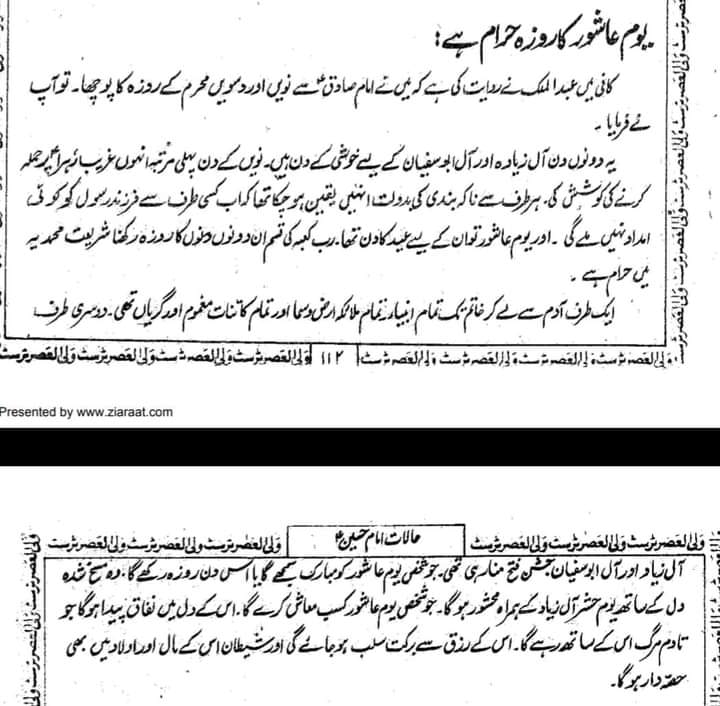 یوم عاشور کا روزہ حرام ہے؛
کافی میں عبدالملک نے روایت کی ہے کہ میں نے امام صادقؑ سے نویں اور دسویں محرم کے روزہ کا پوچھا۔ تو آپ
نے فرمایا۔
یہ دونوں دن آل زیادہ اور آل ابوسفیان کے لیے خوشی کے دن ہیں۔ نویں کے دن پہلی مرتبہ انہوں غریب زہراؑ پر حملہ
کرنے کی کوشش کی۔ ہر طرف سے ناکہ بندی کی بدولت انہیں یقین ہو چکا تھا کہ اب کسی طرف سے فرزند رسولؐ کو کوئی
امداد نہیں ملے گی ۔ اور یوم عاشور تو ان کے لیے عید کا دن تھا۔ رب کعبہ کی قسم ان دونوں دنوں کا روزہ رکھنا شریعت محمدیہ
میں حرام ہے ۔
ایک طرف آدم سے لے کر خاتم تک تمام انبیاء، تمام ملائکہ ارض و سما اور تمام کائنات مغموم اور گریاں تھی۔ دوسری طرف
ولی العصر ٹرسٹ ولی العصر ٹرسٹ ولی العصر ٹرسٹ ولی العصر ٹرسٹ ۱۱۲ ولی العصر ٹرسٹ ولی العصر ٹرسٹ ولی العصر ٹرسٹ ولی العصر ٹرسٹ
Presented by www.ziaraat.com
ولی العصر ٹرسٹ ولی العصر ٹرسٹ ولی العصر ٹرسٹ حالات امام حسینؑ ولی العصر ٹرسٹ ولی العصر ٹرسٹ ولی العصر ٹرسٹ
آل زیاد اور آل ابوسفیان جشن فتح منا رہی تھی۔ جو شخص یوم عاشور کو مبارک سمجھے گا یا اس دن روزہ رکھے گا، وہ مسخ شدہ
دل کے ساتھ یوم حشر آل زیاد کے ہمراہ محشور ہو گا۔ جو شخص یوم عاشور کسب معاش کرے گا، اس کے دل میں نفاق پیدا ہو گا جو
تادم مرگ اس کے ساتھ رہے گا۔ اس کے رزق سے برکت سلب ہو جائے گی اور شیطان اس کے مال اور اولاد میں بھی
حصہ دار ہو گا۔